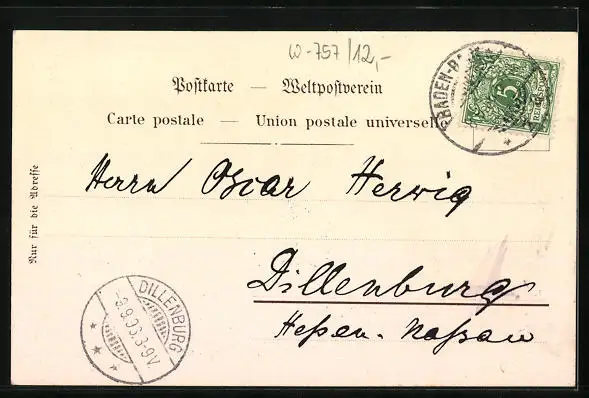 W-757/12,-
Postkarte — Weltpostverein
Carte postale — Union postale universelle
BADEN-BA
5
Nur für die Adresse
Herrn Oscar Herwig
Dillenburg
Heßen-Naßau
DILLENBURG
8-9V.